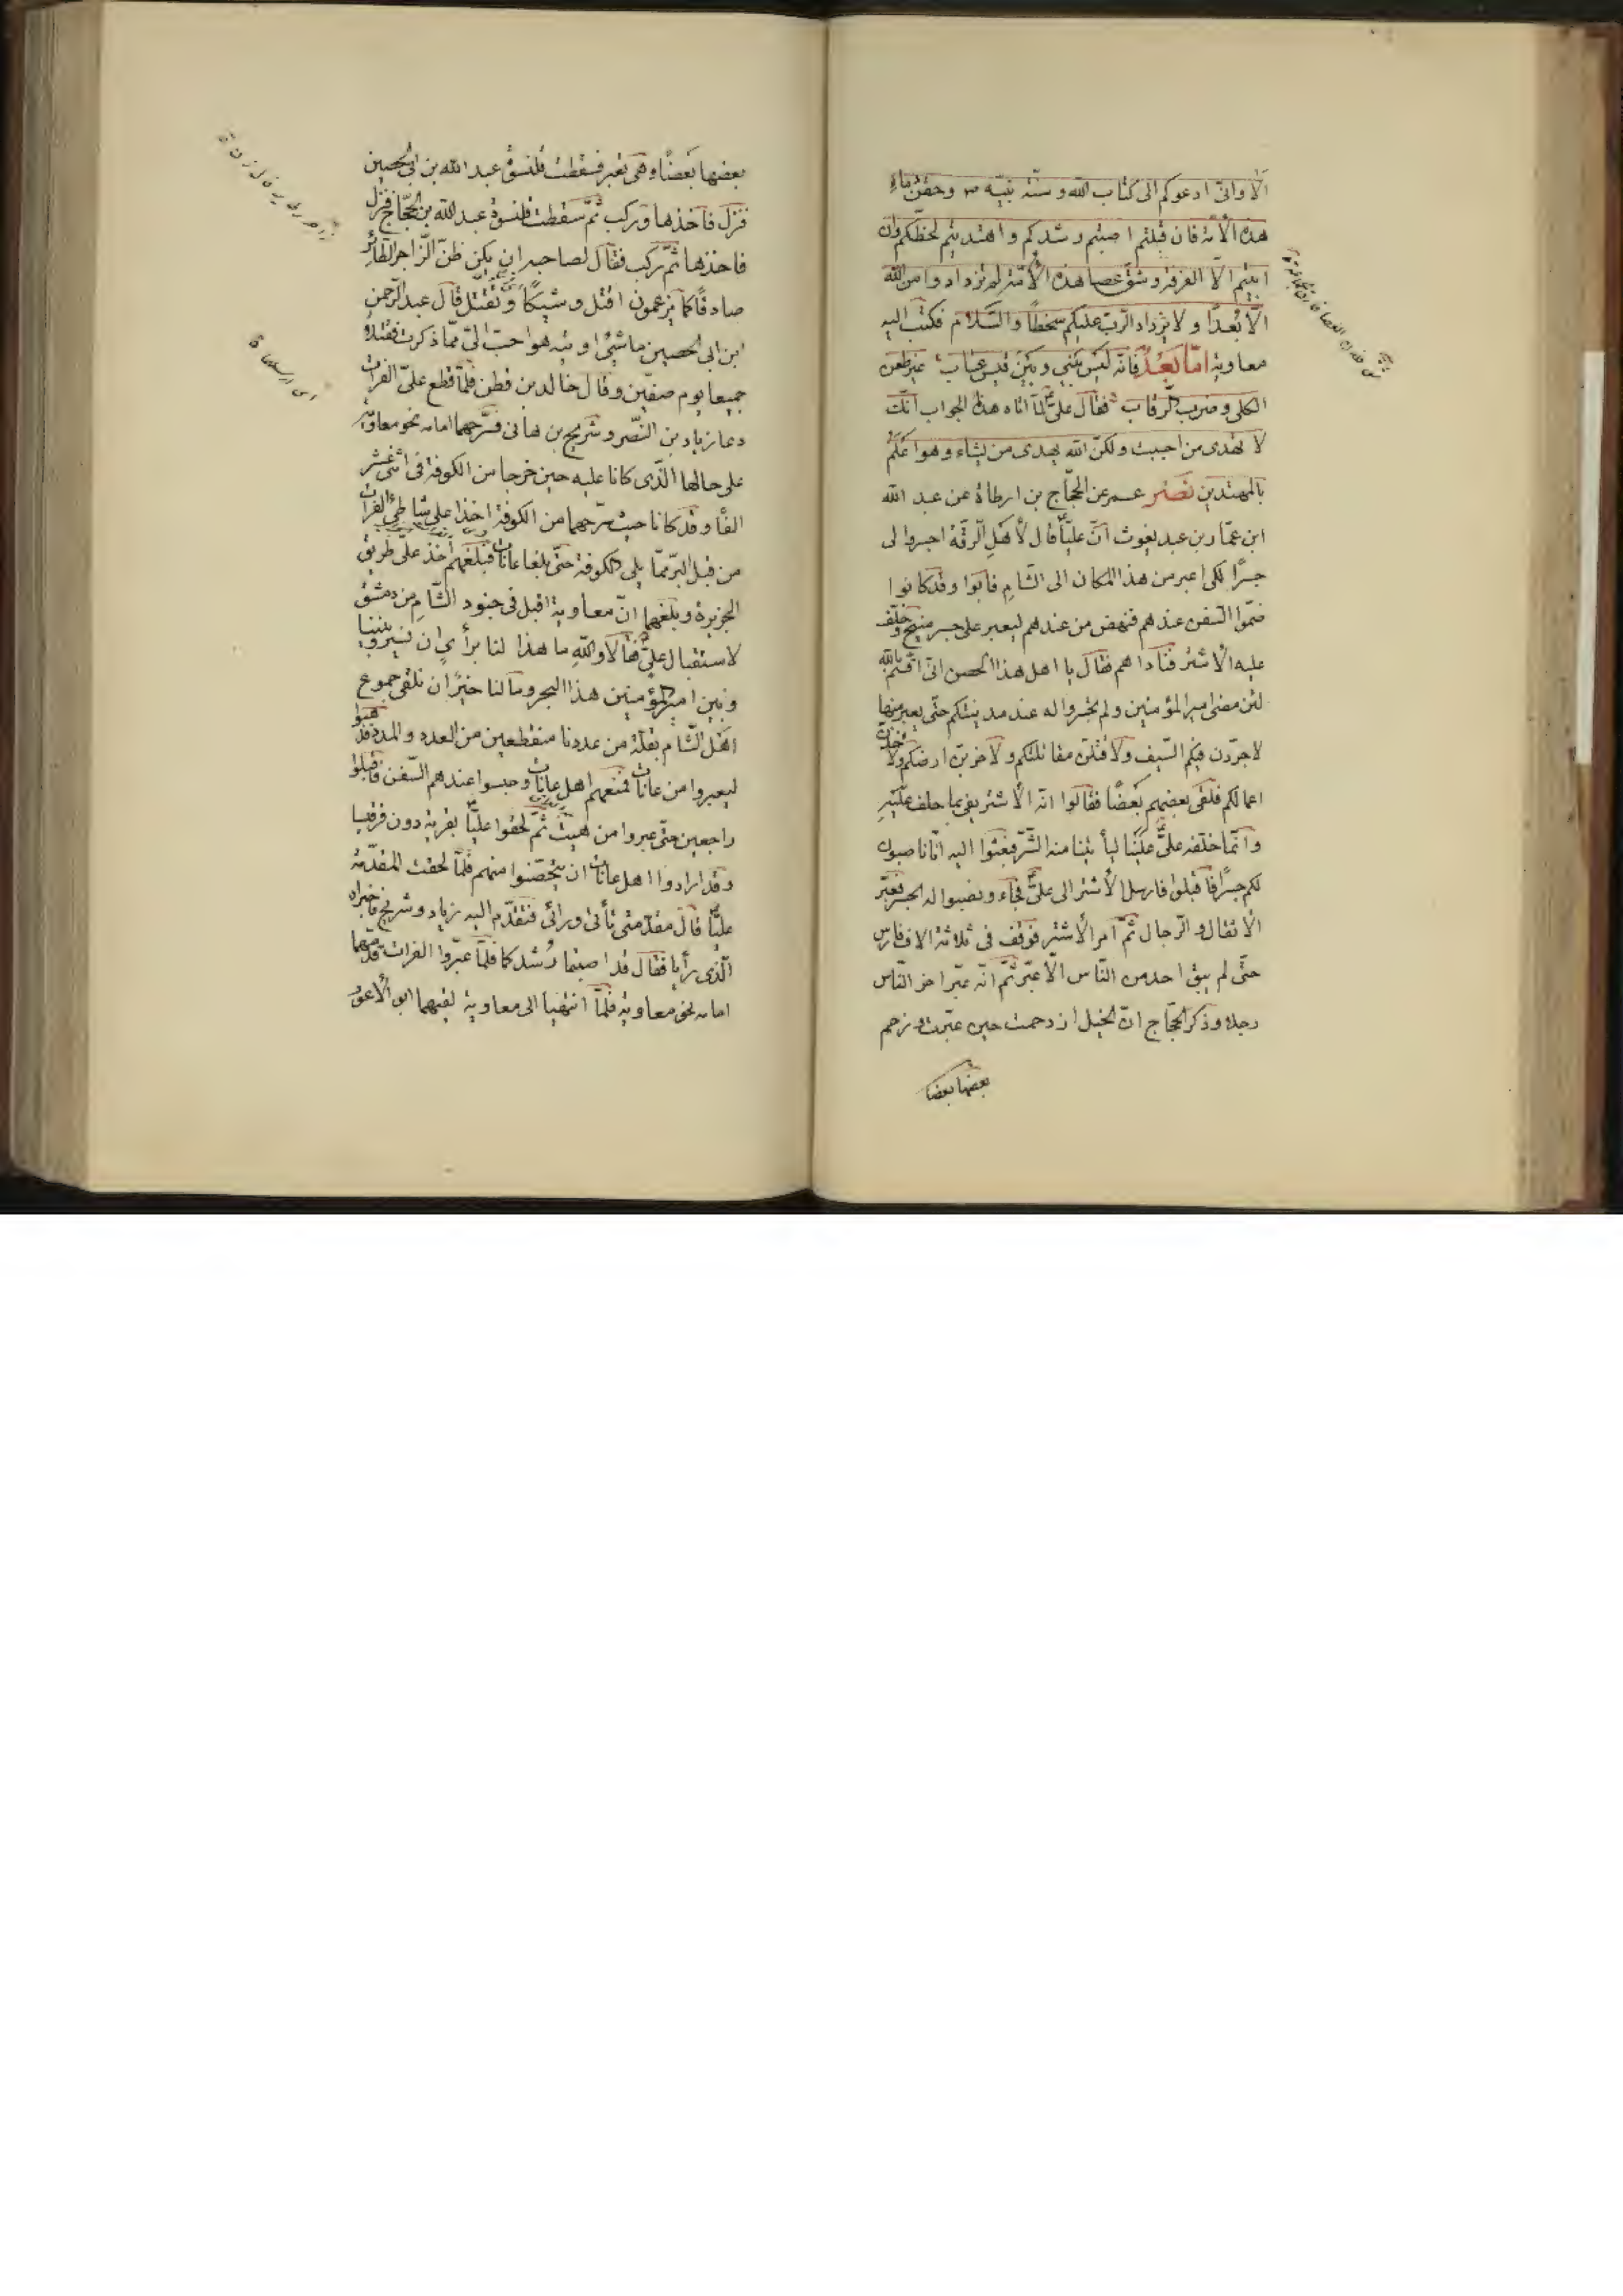 الا وانّی ادعوکم الی کتاب الله و سنّة نبیّه ص وحقن دماء
هذه الأمّة فان قبلتم اصبتم رشدکم و اهتدیتم لحظّکم وان
ابیتم الّا الفرقة وشقّ عصا هذه الأمّة لم تزدادوا من الله
الّا بُعدًا و لا یزداد الرّبّ علیکم سخطًا والسّلام فکتب الیه
معاویة امّا بَعْدُ فَانّه لَیْسَ بَیْنی و بَیْنَ قَیسٍ عتاب غیر طعن
الکلی و ضرب الرّقاب فقال علیّ ع لمّا اتاه هذا الجواب انّک
لا تهدی من احببت ولکنّ الله یهدی من یشاء وهو اعلم
بالمهتدین نصر عمر عن الحجّاج بن ارطاة عن عبد الله
ابن عمّار بن عبد یغوث انّ علیًّا قال لأهل الرقّة اجسروا لی
جسرًا لکی اعبر من هذا المکان الی الشّام فابوا وقد کانوا
ضمّوا السّفن عندهم فنهض من عندهم لیعبر علی جسر منبج وخلّف
علیه الأشتر فناداهم فقال یا اهل هذا الحصن انّی اقسم بالله
لئن مضی امیر المؤمنین ولم تجسروا له عند مدینتکم حتّی یعبر منها
لاجرّدن فیکم السّیف ولأقتلنّ مقاتلتکم ولأخربنّ ارضکم ولآخذنّ
اموالکم فلقی بعضهم بعضًا فقالوا انّه الأشتر یفی بما حلف علیه
وانّما خلّفه علیّ علینا لیأتینا منه الشّرّ فبعثوا الیه انّا ناصبون
لکم جسرًا فاقبلوا فارسل الأشتر الی علیّ فجاء ونصبوا له الجسر فعبّر
الأثقال والرّجال ثمّ امر الأشتر فوقف فی ثلاثة الاف فارس
حتّی لم یبق احد من النّاس الّا عبر ثمّ انّه عبر اخر النّاس
رجلا وذکر الحجّاج انّ الخیل ازدحمت حین عبرت وزحم
بعضها بعضا
بعضها بعضًا وهی تعبر فسقطت قلنسوة عبد الله بن ابی الحصین
فنزل فاخذها ورکب ثمّ سقطت قلنسوة عبد الله بن الحجّاج فنزل
فاخذها ثمّ رکب فقال لصاحبه ان یکن ظنّ الزّاجر الطّائر
صادقًا کما یزعمون اقتل وشیکًا وتُقتل قال عبد الرّحمن
ابن ابی الحصین ما شیء اوتیه هو احبّ الیّ ممّا ذکرت فقتلا
جمیعا یوم صفّین وقال خالد بن قطن فلمّا قطع علیّ الفرات
دعا زیاد بن النّضر وشریح بن هانی فسرّحهما امامه نحو معاویة
علی حالهما الّذی کانا علیه حین خرجا من الکوفة فی اثنی عشر
الفًا وقد کانا حیث سرّحهما من الکوفة اخذا علی شاطئ الفرات
من قبل البرّ ممّا یلی الکوفة حتّی بلغا عانات فبلغهم أخذ علیّ طریق
الجزیرة وبلغهما انّ معاویة اقبل فی جنود الشّام من دمشق
لاستقبال علیّ فقالا لا والله ما هذا لنا برأیٍ ان نسیر وبیننا
وبین امیر المؤمنین هذا البحر وما لنا خیرًا ان نلقی جموع
اهل الشّام بقلّة من عددنا منقطعین من العدد والمدد فذهبوا
لیعبروا من عانات فمنعهم اهل عانات وحبسوا عندهم السّفن فاقبلوا
راجعین حتّی عبروا من هیت ثمّ لحقوا علیًّا بقریة دون قرقیسا
وقد ارادوا اهل عانات ان یتحصّنوا منهم فلمّا لحقت المقدّمة
علیًّا قال مقدّمتی تأتی ورائی فتقدّم الیه زیاد وشریح فاخبراه
الّذی رأیا فقال قد اصبتما رُشدکما فلمّا عبروا الفرات قدّمهما
امامه نحو معاویة فلمّا انتهیا الی معاویة لقیهما ابو الأعور